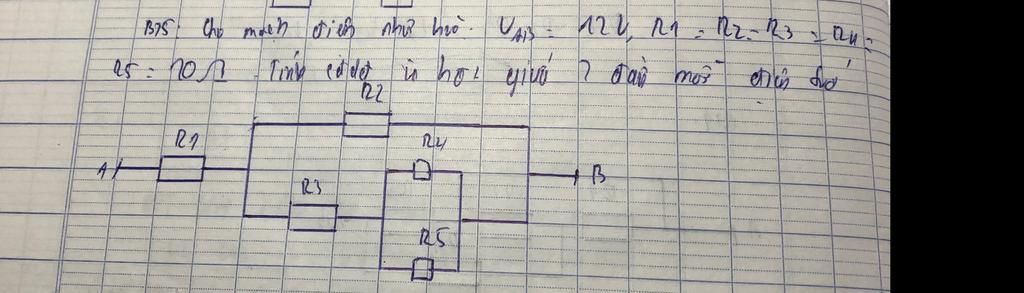 B75: Cho mạch điện như hvẽ. UAB = 12V, R1 = R2 = R3 = R4 =
R5 = 10Ω. Tính cđdđ và hđt giữa 2 đầu mỗi điện trở
R2
R1
R4
A
B
R3
R5